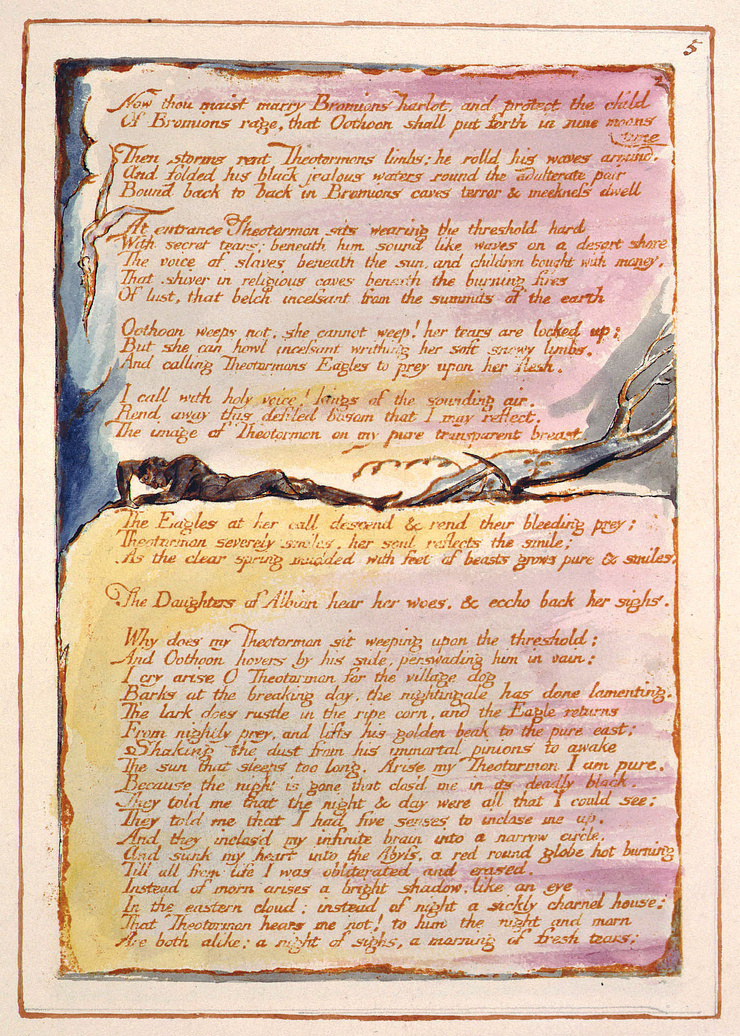 5
2
Now thou maist marry Bromions harlot, and protect the child
Of Bromions rage, that Oothoon shall put forth in nine moons
time
Then storms rent Theotormons limbs; he rolld his waves around.
And folded his black jealous waters round the adulterate pair
Bound back to back in Bromions caves terror & meekness dwell
At entrance Theotormon sits wearing the threshold hard
With secret tears; beneath him sound like waves on a desart shore
The voice of slaves beneath the sun, and children bought with money,
That shiver in religious caves beneath the burning fires
Of lust, that belch incessant from the summits of the earth
Oothoon weeps not, she cannot weep! her tears are locked up;
But she can howl incessant writhing her soft snowy limbs.
And calling Theotormons Eagles to prey upon her flesh.
I call with holy voice! kings of the sounding air,
Rend away this defiled bosom that I may reflect.
The image of Theotormon on my pure transparent breast.
The Eagles at her call descend & rend their bleeding prey;
Theotormon severely smiles, her soul reflects the smile;
As the clear spring mudded with feet of beasts grows pure & smiles.
The Daughters of Albion hear her woes, & eccho back her sighs.
Why does my Theotormon sit weeping upon the threshold;
And Oothoon hovers by his side, perswading him in vain:
I cry arise O Theotormon for the village dog
Barks at the breaking day, the nightingale has done lamenting.
The lark does rustle in the ripe corn, and the Eagle returns
From nightly prey, and lifts his golden beak to the pure east;
Shaking the dust from his immortal pinions to awake
The sun that sleeps too long. Arise my Theotormon I am pure.
Because the night is gone that clos'd me in its deadly black.
They told me that the night & day were all that I could see;
They told me that I had five senses to inclose me up.
And they inclos'd my infinite brain into a narrow circle,
And sunk my heart into the Abyss, a red round globe hot burning
Till all from life I was obliterated and erased.
Instead of morn arises a bright shadow, like an eye
In the eastern cloud; instead of night a sickly charnel house;
That Theotormon hears me not! to him the night and morn
Are both alike; a night of sighs, a morning of fresh tears;